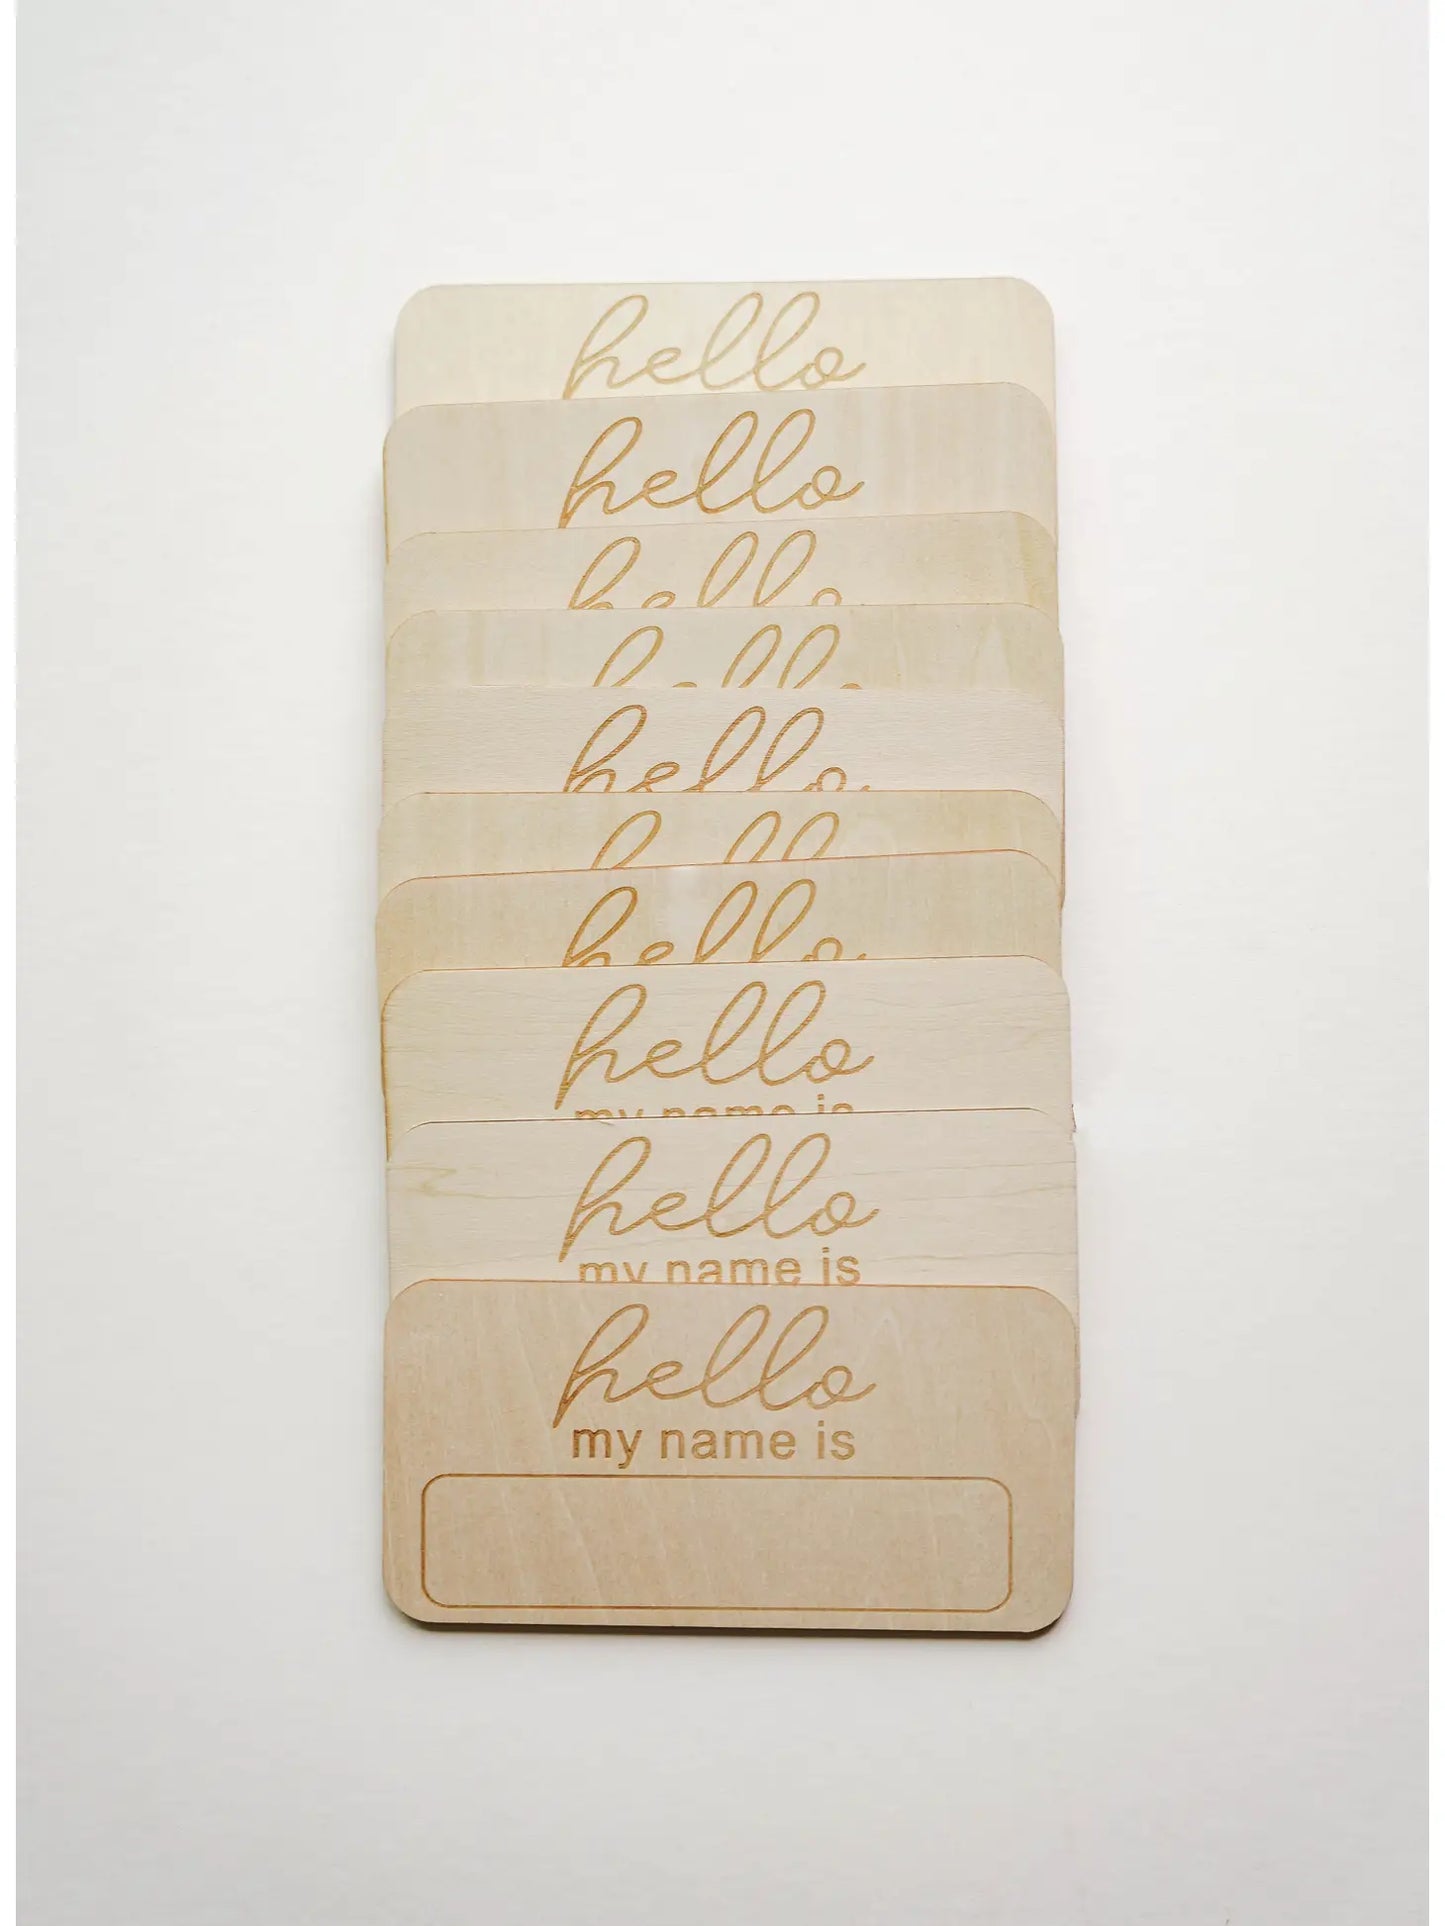 hello
hello
hello
hello
hello
hello
hello
hello
my name is
hello
my name is
hello
my name is